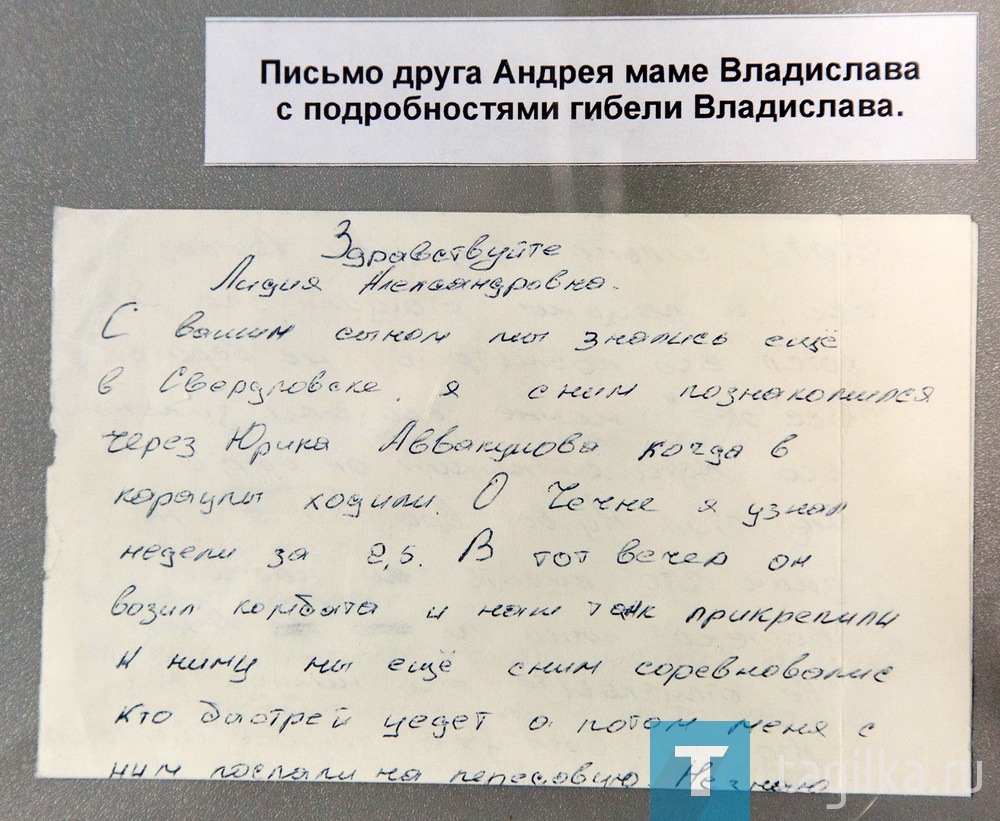 Письмо друга Андрея маме Владислава
с подробностями гибели Владислава.
Здравствуйте
Лидия Александровна.
С вашим сыном мы знались ещё
в Свердловске. я сним познакомился
через Юрика Аввакумова когда в
караулы ходили. О Чечне я узнал
недели за 2,5. В тот вечер он
возил комбата и наш танк прикрепили
к ниму мы ещё сним соревновались
кто быстрей уедет а потом меня с
ним послали на передовую Незнаю
T
tagilka.ru